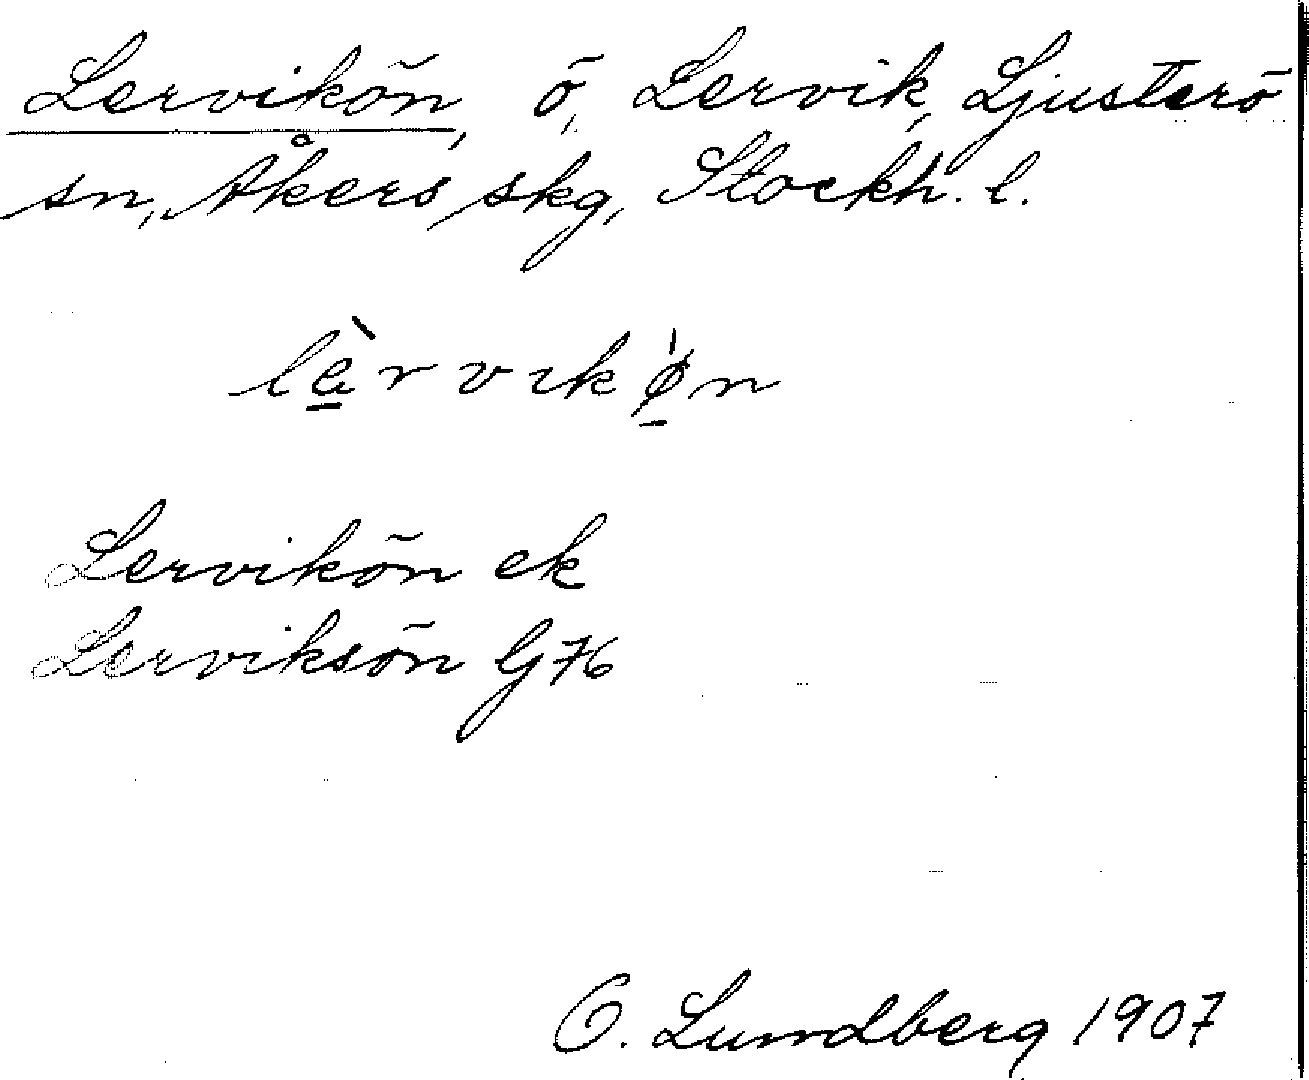 Lervikön, ö, Lervik, Ljusterö
sn, Åkers skg, Stockh. l.
lèrvikø̀n
Lervikön ek
Lerviksön G 76
O. Lundberg 1907